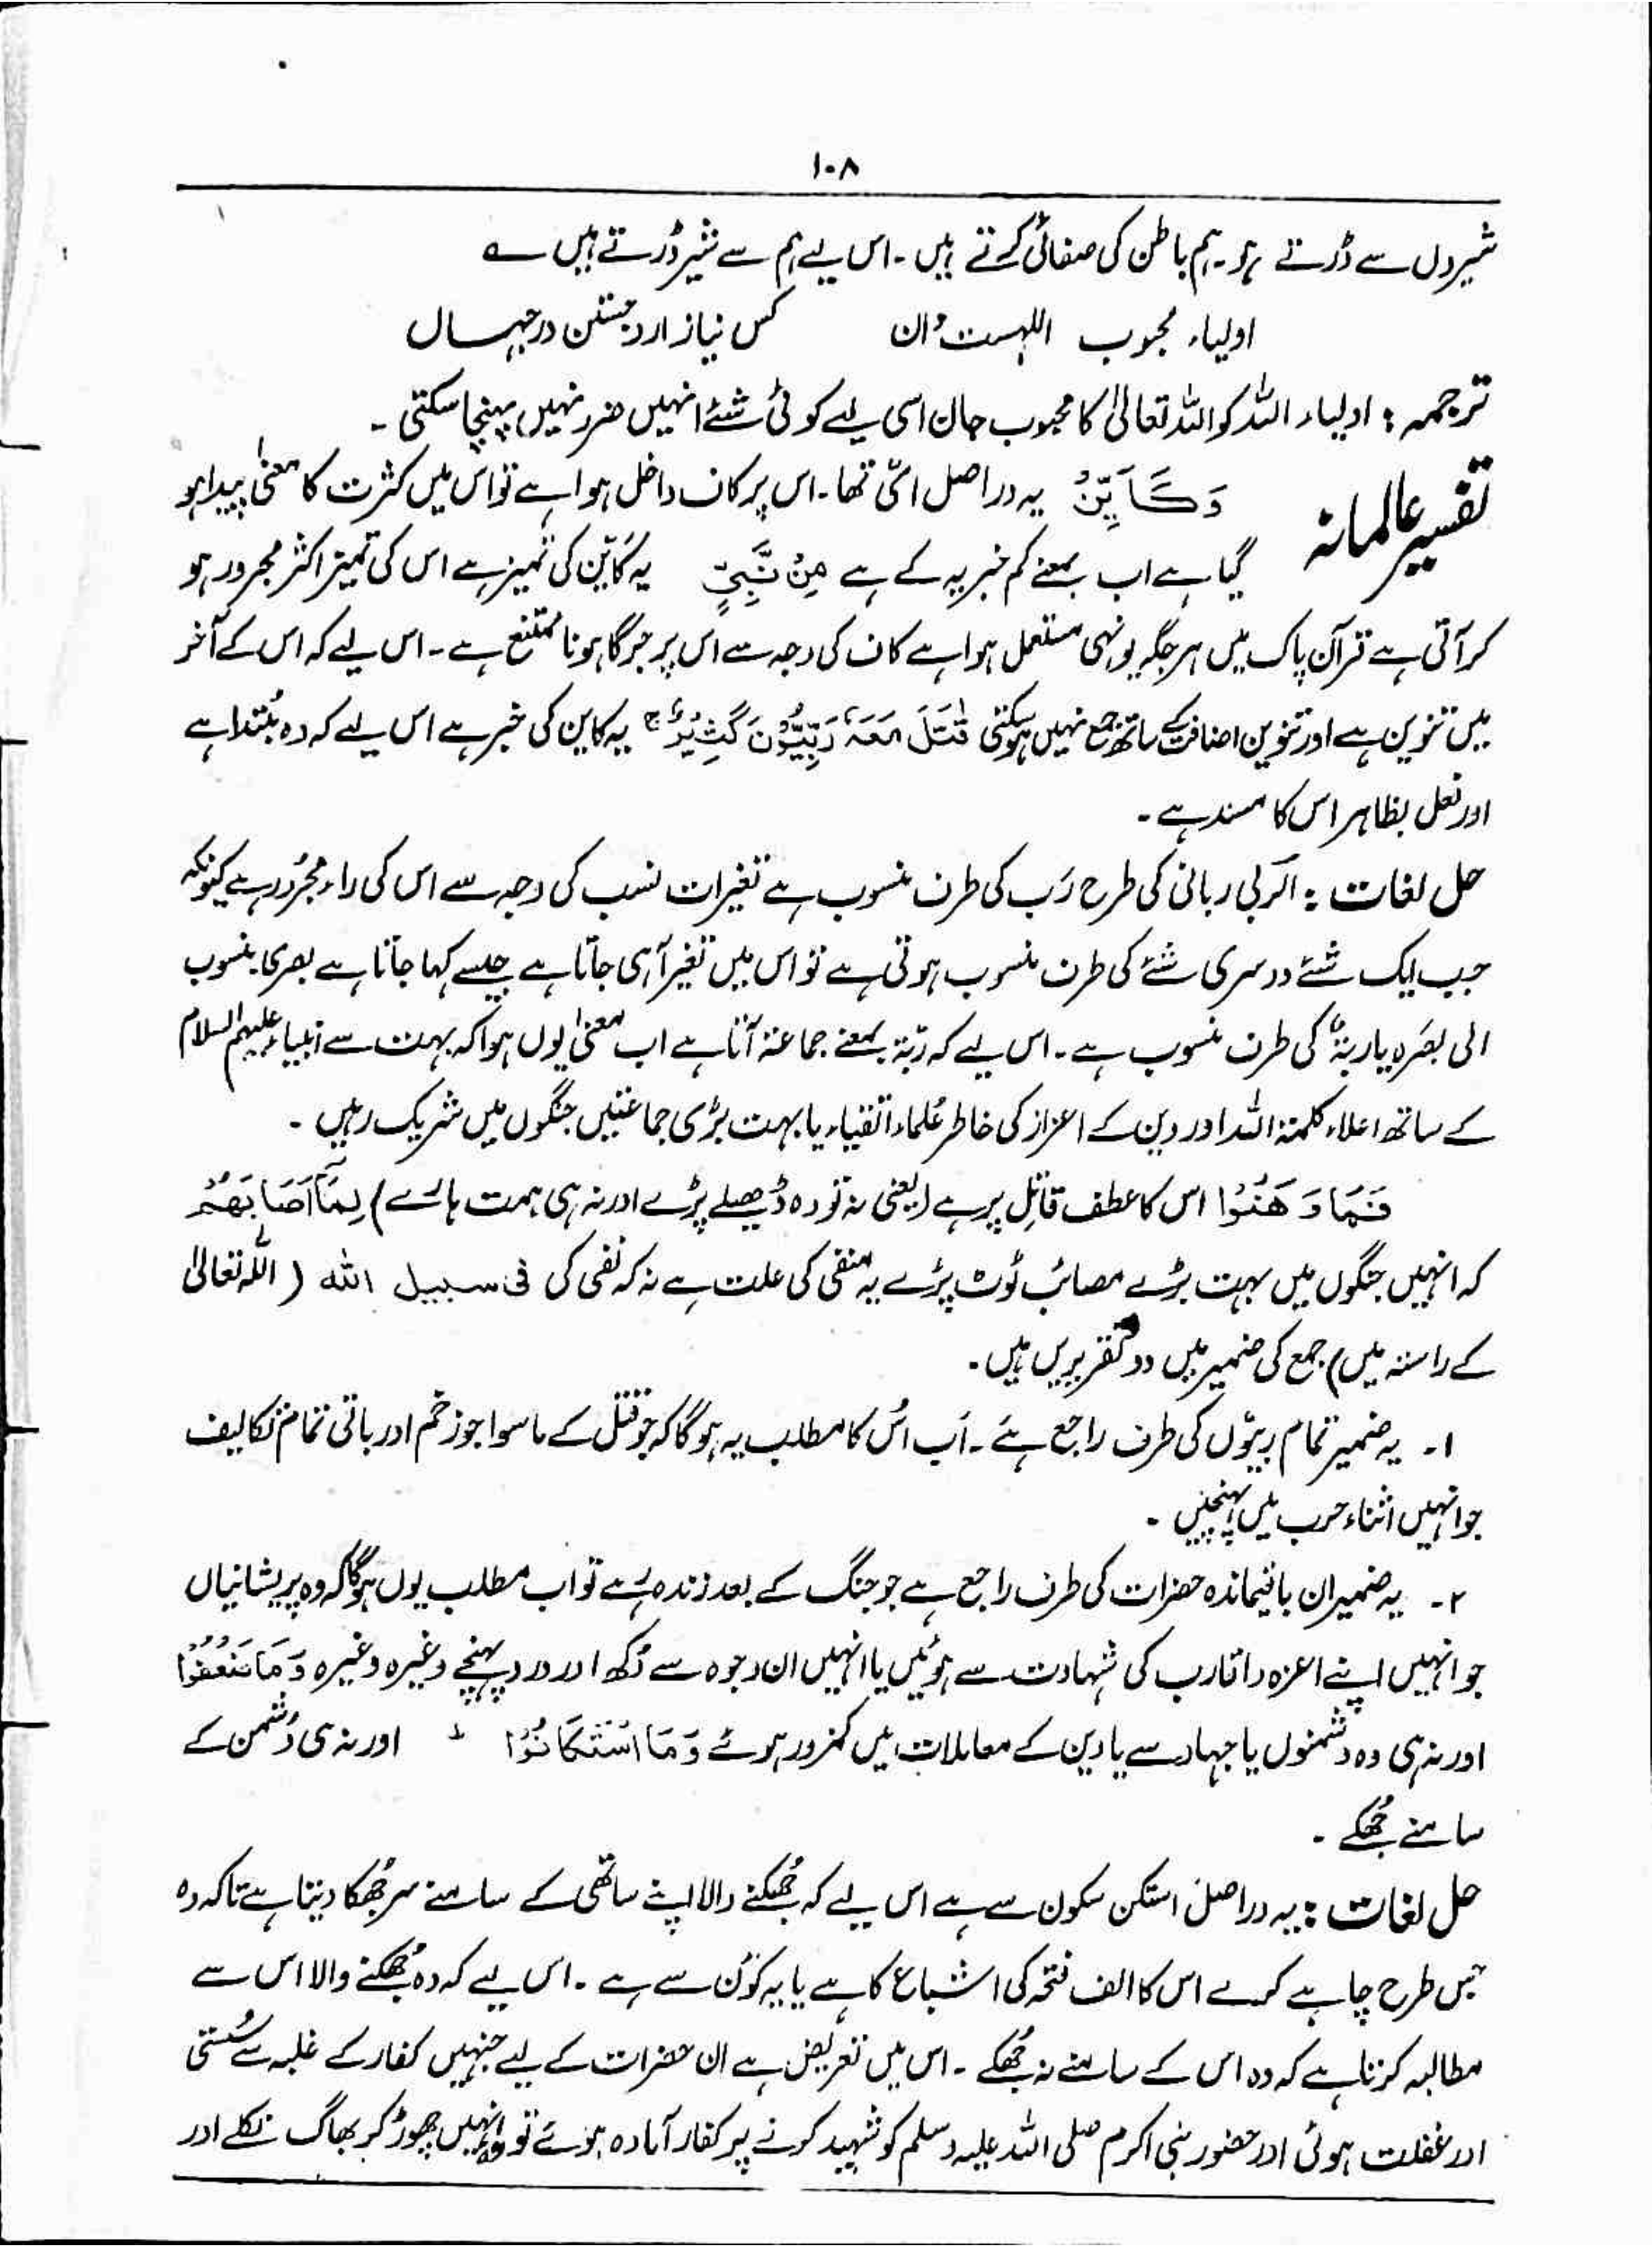 ۱۰۸
شیر دل سے ڈرتے ہو۔ ہم باطن کی صفائی کرتے ہیں۔ اس لیے ہم سے شیر ڈرتے ہیں ؎
اولیاء محبوب اللہست دان کس نیاز ارد جستن در جہاں
ترجمہ : اولیاء اللہ کو اللہ تعالیٰ کا محبوب جان اسی لیے کوئی شئے انہیں ضرر نہیں پہنچا سکتی ۔
تفسیر عالمانہ وَكَاَيِّنْ یہ دراصل ایٌّ تھا۔ اس پر کاف داخل ہوا ہے تو اس میں کثرت کا معنیٰ پیدا ہو
گیا ہے اب بمعنے کم خبریہ کے ہے مِنْ نَّبِيٍّ یہ کَاَیّن کی تمیز ہے اس کی تمیز اکثر مجرور ہو
کر آتی ہے قرآن پاک میں ہر جگہ یونہی مستعمل ہوا ہے کاف کی وجہ سے اس پر جر کا ہونا ممتنع ہے۔ اس لیے کہ اس کے آخر
میں تنوین ہے اور تنوین اضافت کے ساتھ جمع نہیں ہو سکتی قٰتَلَ مَعَهٗ رِبِّيُّوْنَ كَثِيْرٌ ج یہ کاین کی خبر ہے اس لیے کہ وہ مُبتدا ہے
اور فعل بظاہر اس کا مسند ہے ۔
حل لغات : الرّبی ربانی کی طرح رَب کی طرف منسوب ہے تغیرات نسب کی وجہ سے اس کی راء مجُرور ہے کیونکہ
جب ایک شئے دوسری شئے کی طرف منسوب ہوتی ہے تو اس میں تغیر آہی جاتا ہے جیسے کہا جاتا ہے بصری منسوب
الی بصَرہ یا ربۃٌ کی طرف منسوب ہے۔ اس لیے کہ ربّۃ بمعنے جماعۃ آتا ہے اب معنیٰ یوں ہوا کہ بہت سے انبیاء علیہم السلام
کے ساتھ اعلاء کلمتہ اللہ اور دین کے اعزاز کی خاطر عُلماء اتقیاء یا بہت بڑی جماعتیں جنگوں میں شریک رہیں ۔
فَمَا وَهَنُوْا اس کا عطف قاتل پر ہے (یعنی نہ تو وہ ڈھیلے پڑے اور نہ ہی ہمت ہارے) لِمَآ اَصَابَهُمْ
کہ انہیں جنگوں میں بہت بڑے مصائب ٹوٹ پڑے یہ منفی کی علت ہے نہ کہ نفی کی فی سبیل اللہ ( اللہ تعالیٰ
کے راستہ میں) جمع کی ضمیر میں دو تقریریں ہیں۔
۱۔ یہ ضمیر تمام ربیّوں کی طرف راجع ہے۔ اَب اُس کا مطلب یہ ہوگا کہ جو قتل کے ماسوا جو زخم اور باقی تمام تکالیف
جو انہیں اثناء حرب میں پہنچیں ۔
۲۔ یہ ضمیر ان باقیماندہ حضرات کی طرف راجع ہے جو جنگ کے بعد زندہ رہے تو اب مطلب یوں ہوگا کہ وہ پریشانیاں
جو انہیں اپنے اعزہ و اقارب کی شہادت سے ہوئیں یا انہیں ان وجوہ سے دُکھ اور درد پہنچے وغیرہ وغیرہ وَمَا ضَعُفُوْا
اور نہ ہی وہ دُشمنوں یا جہاد سے یا دین کے معاملات میں کمزور ہوئے وَمَا اسْتَكَانُوْا ط اور نہ ہی دُشمن کے
سامنے جُھکے ۔
حل لغات : یہ دراصل استکن سکون سے ہے اس لیے کہ جُھکنے والا اپنے ساتھی کے سامنے سر جُھکا دیتا ہے تاکہ وہ
جس طرح چاہے کرے اس کا الف فتحہ کی اشباع کا ہے یا یہ کَوْن سے ہے ۔ اس لیے کہ وہ جُھکنے والا اس سے
مطالبہ کرتا ہے کہ وہ اس کے سامنے نہ جُھکے ۔ اس میں تعریض ہے ان حضرات کے لیے جنہیں کفار کے غلبہ سے سُستی
اور غفلت ہوئی اور حضور نبی اکرم صلی اللہ علیہ وسلم کو شہید کرنے پر کفار آمادہ ہوئے تو وہ انہیں چھوڑ کر بھاگ نکلے اور